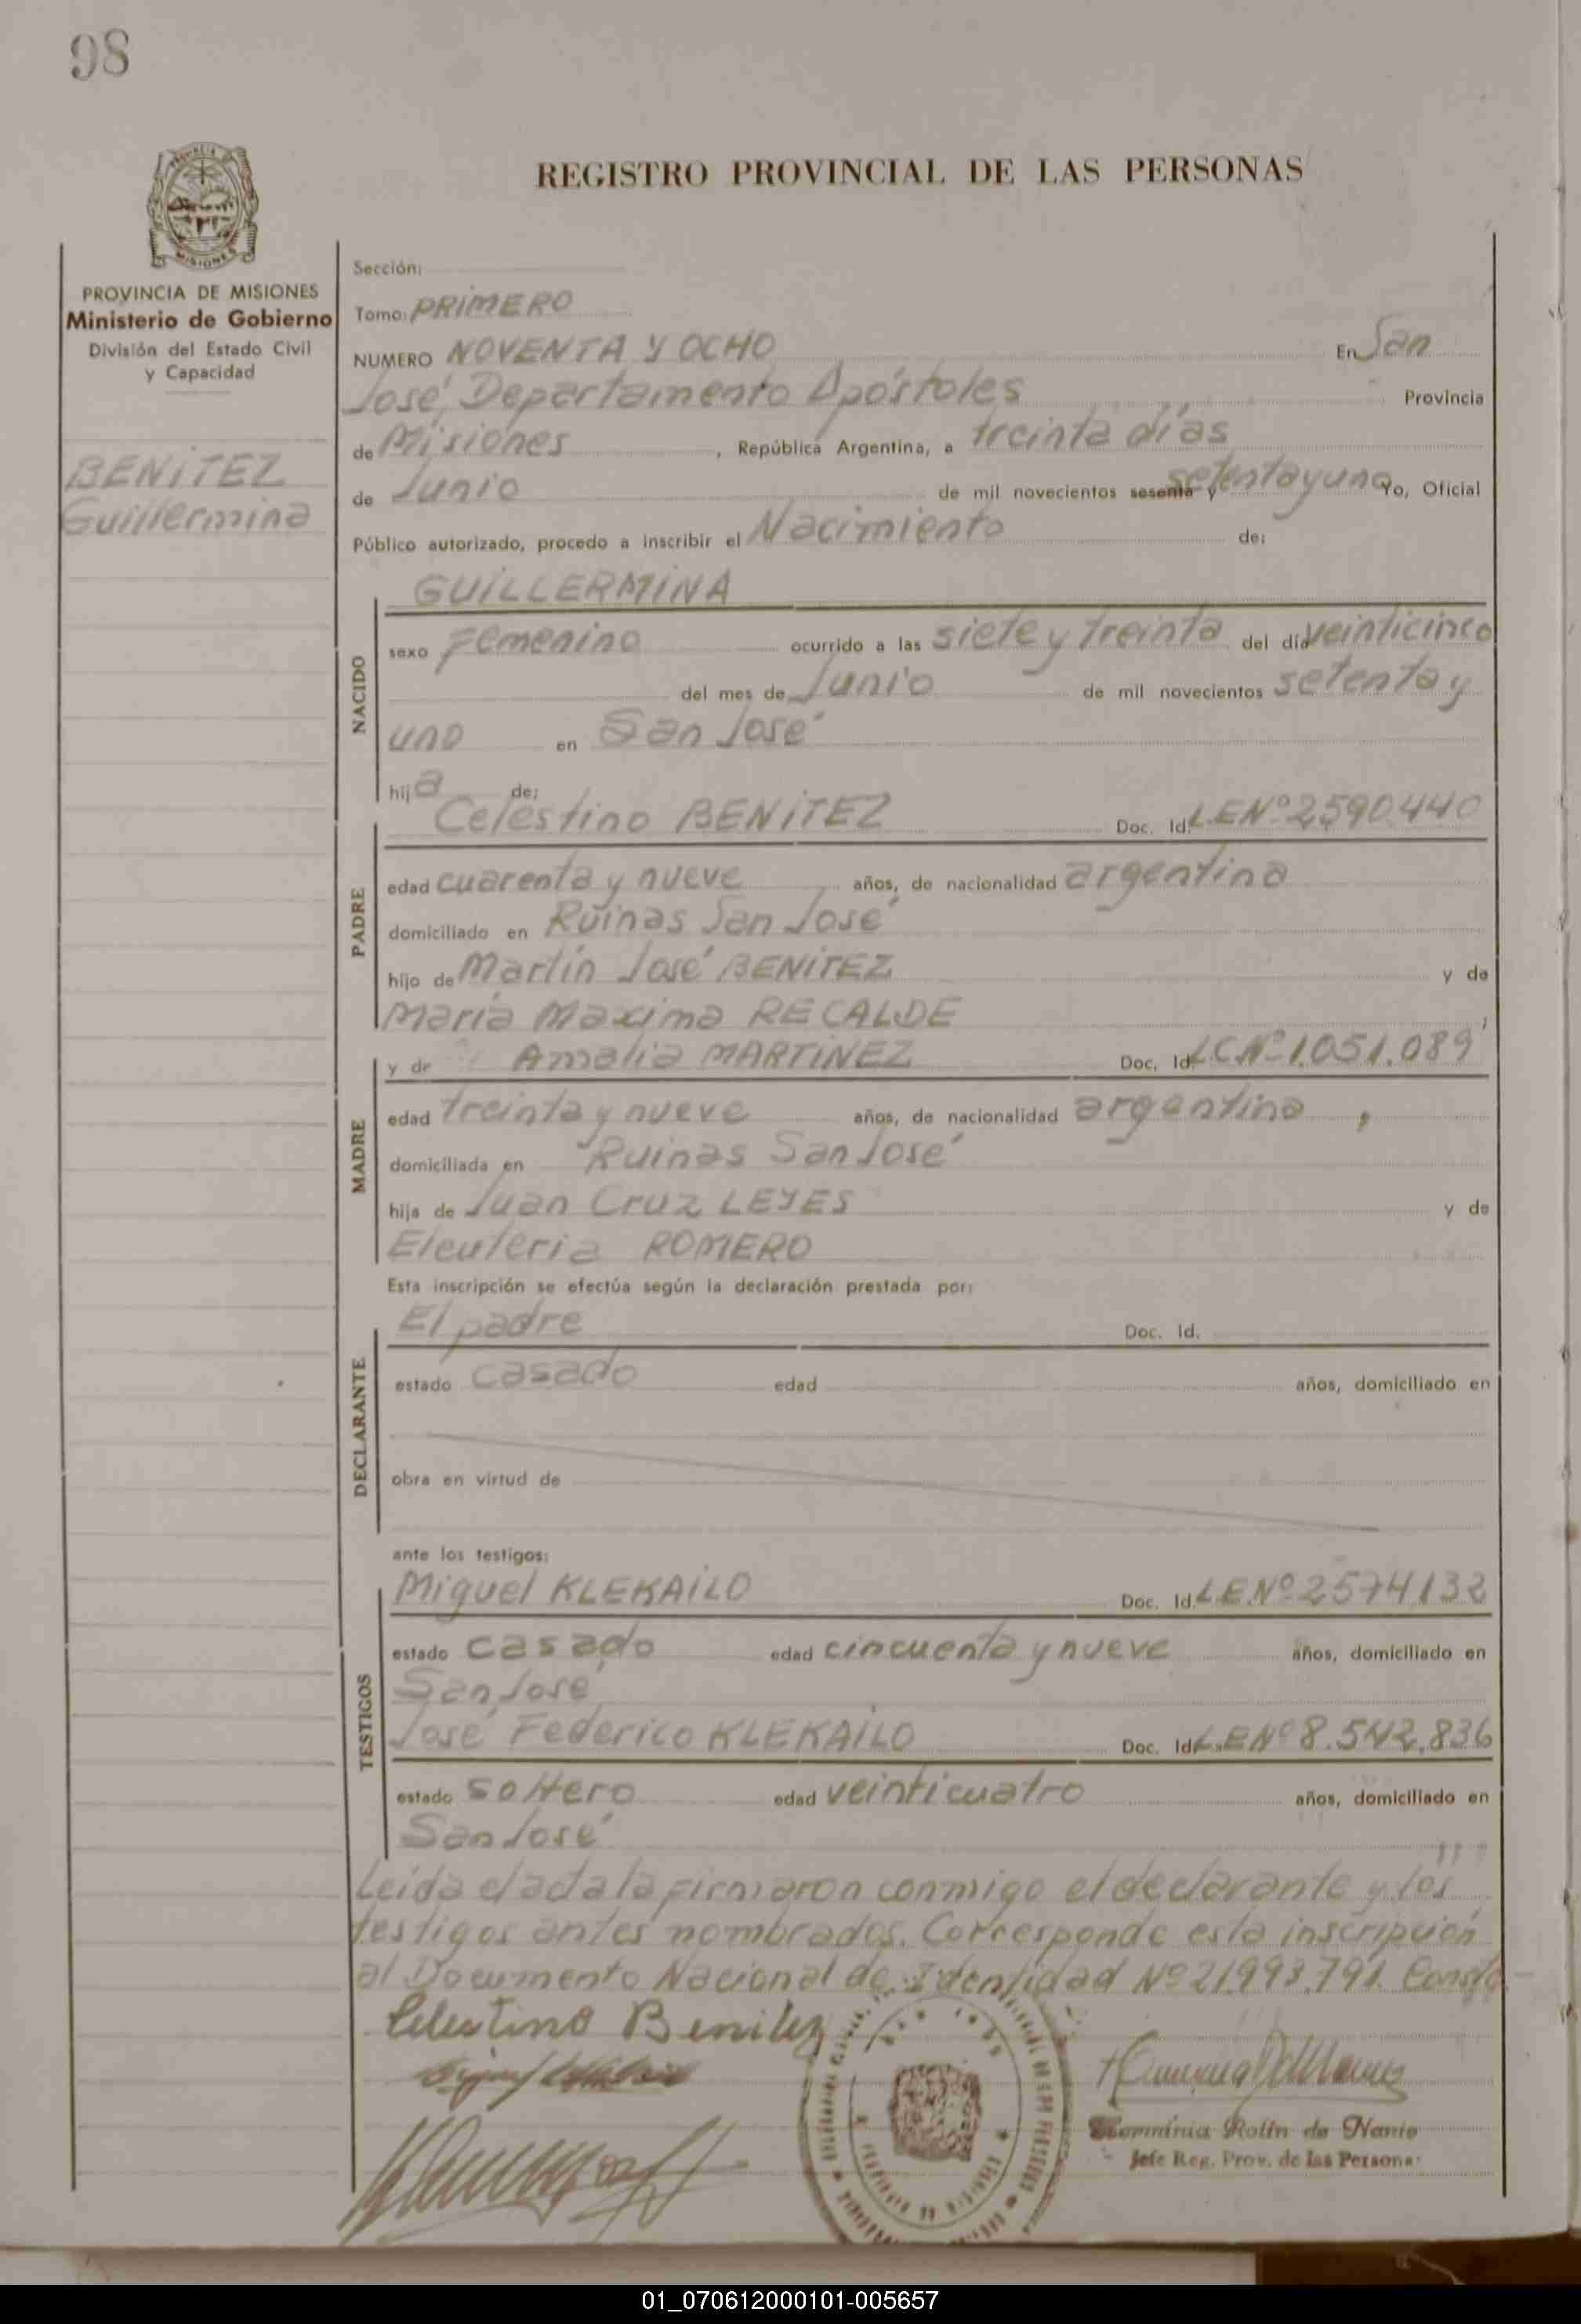 98
REGISTRO PROVINCIAL DE LAS PERSONAS
MISIONES
PROVINCIA DE MISIONES
Ministerio de Gobierno
División del Estado Civil
y Capacidad
BENITEZ
Guillermina
Sección:
Tomo: PRIMERO
NUMERO NOVENTA Y OCHO En San
José, Departamento Apóstoles Provincia
de Misiones, República Argentina, a treinta días
de Junio de mil novecientos sesenta y setenta y uno Yo, Oficial
Público autorizado, procedo a inscribir el Nacimiento de:
NACIDO
GUILLERMINA
sexo Femenino ocurrido a las siete y treinta del día veinticinco
del mes de Junio de mil novecientos setenta y
uno en San José
hija de:
PADRE
Celestino BENITEZ Doc. Id. L.E.Nº 2.590.440
edad cuarenta y nueve años, de nacionalidad argentina
domiciliado en Ruinas San José
hijo de Martín José BENITEZ y de
María Maxima RECALDE
MADRE
y de Amalia MARTINEZ Doc. Id. L.C.Nº 1.051.089
edad treinta y nueve años, de nacionalidad argentina,
domiciliada en Ruinas San José
hija de Juan Cruz LEYES y de
Eleuteria ROMERO
Esta inscripción se efectúa según la declaración prestada por:
DECLARANTE
El padre Doc. Id.
estado casado edad años, domiciliado en
obra en virtud de
ante los testigos:
TESTIGOS
Miguel KLEKAILO Doc. Id. L.E.Nº 2574132
estado casado edad cincuenta y nueve años, domiciliado en
San José
José Federico KLEKAILO Doc. Id. L.E.Nº 8.542.836
estado soltero edad veinticuatro años, domiciliado en
San José
Leída el acta la firmaron conmigo el declarante y los
testigos antes nombrados. Corresponde esta inscripción
al Documento Nacional de Identidad Nº 21.993.791. Consta-
Celestino Benitez
Rolin de Jefe Reg. Prov. de las Personas
01_070612000101-005657